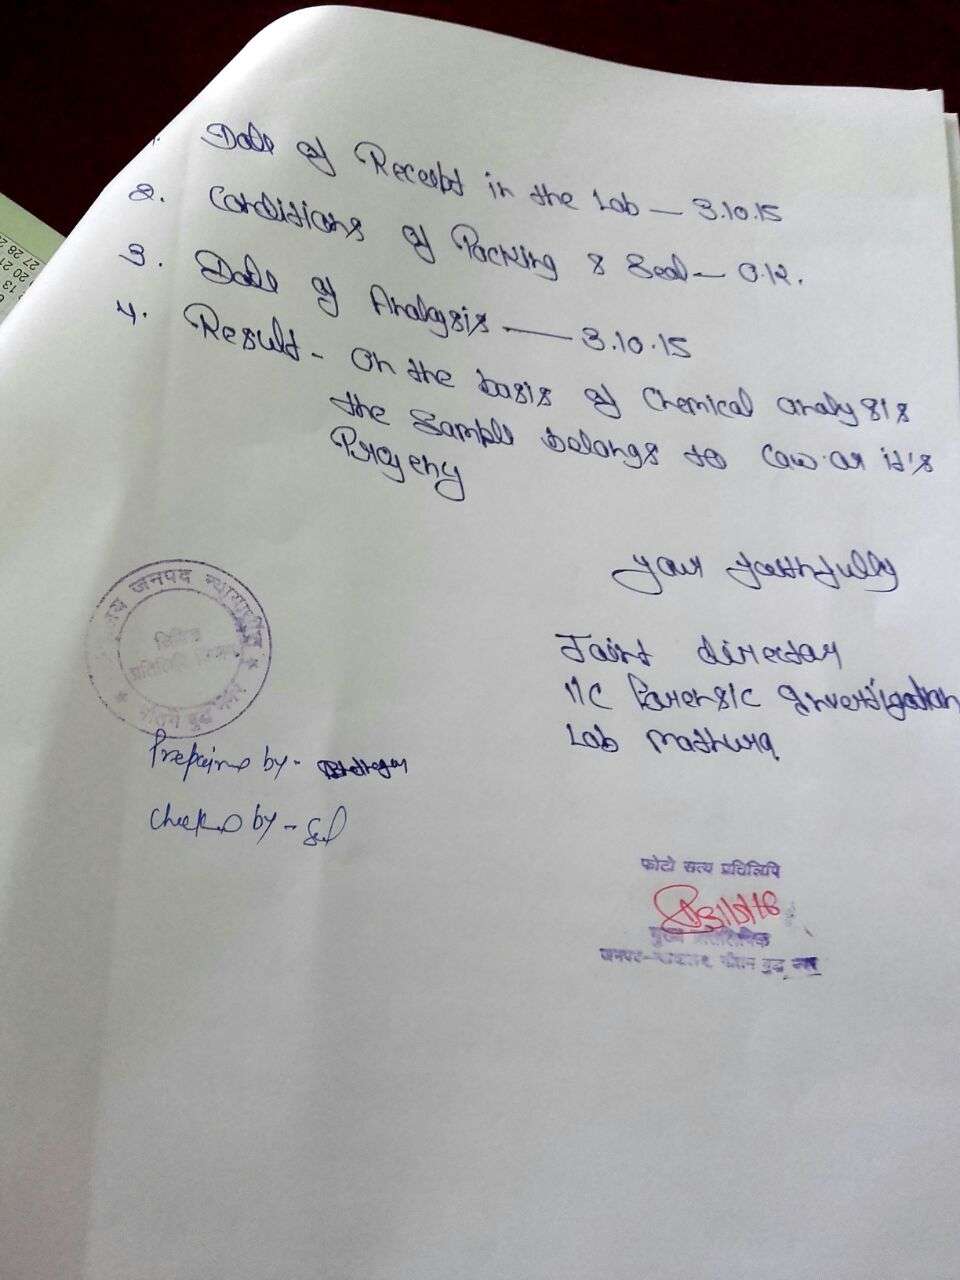 1. Date of Receipt in the Lab — 3.10.15
2. Conditions of Packing & Seal — O.K.
3. Date of Analysis — 3.10.15
4. Result - On the basis of Chemical analysis
the sample belongs to Cow or it's
Progeny
Your faithfully
Joint director
I/C Forensic Investigation
Lab Mathura
जनपद न्यायाधीश
गौतम बुद्ध नगर
Prepaired by -
Checked by - Sd
फोटो सत्य प्रतिलिपि
मुख्य प्रतिलिपिक
जनपद-न्यायालय, गौतम बुद्ध नगर
27 28
20 21
13